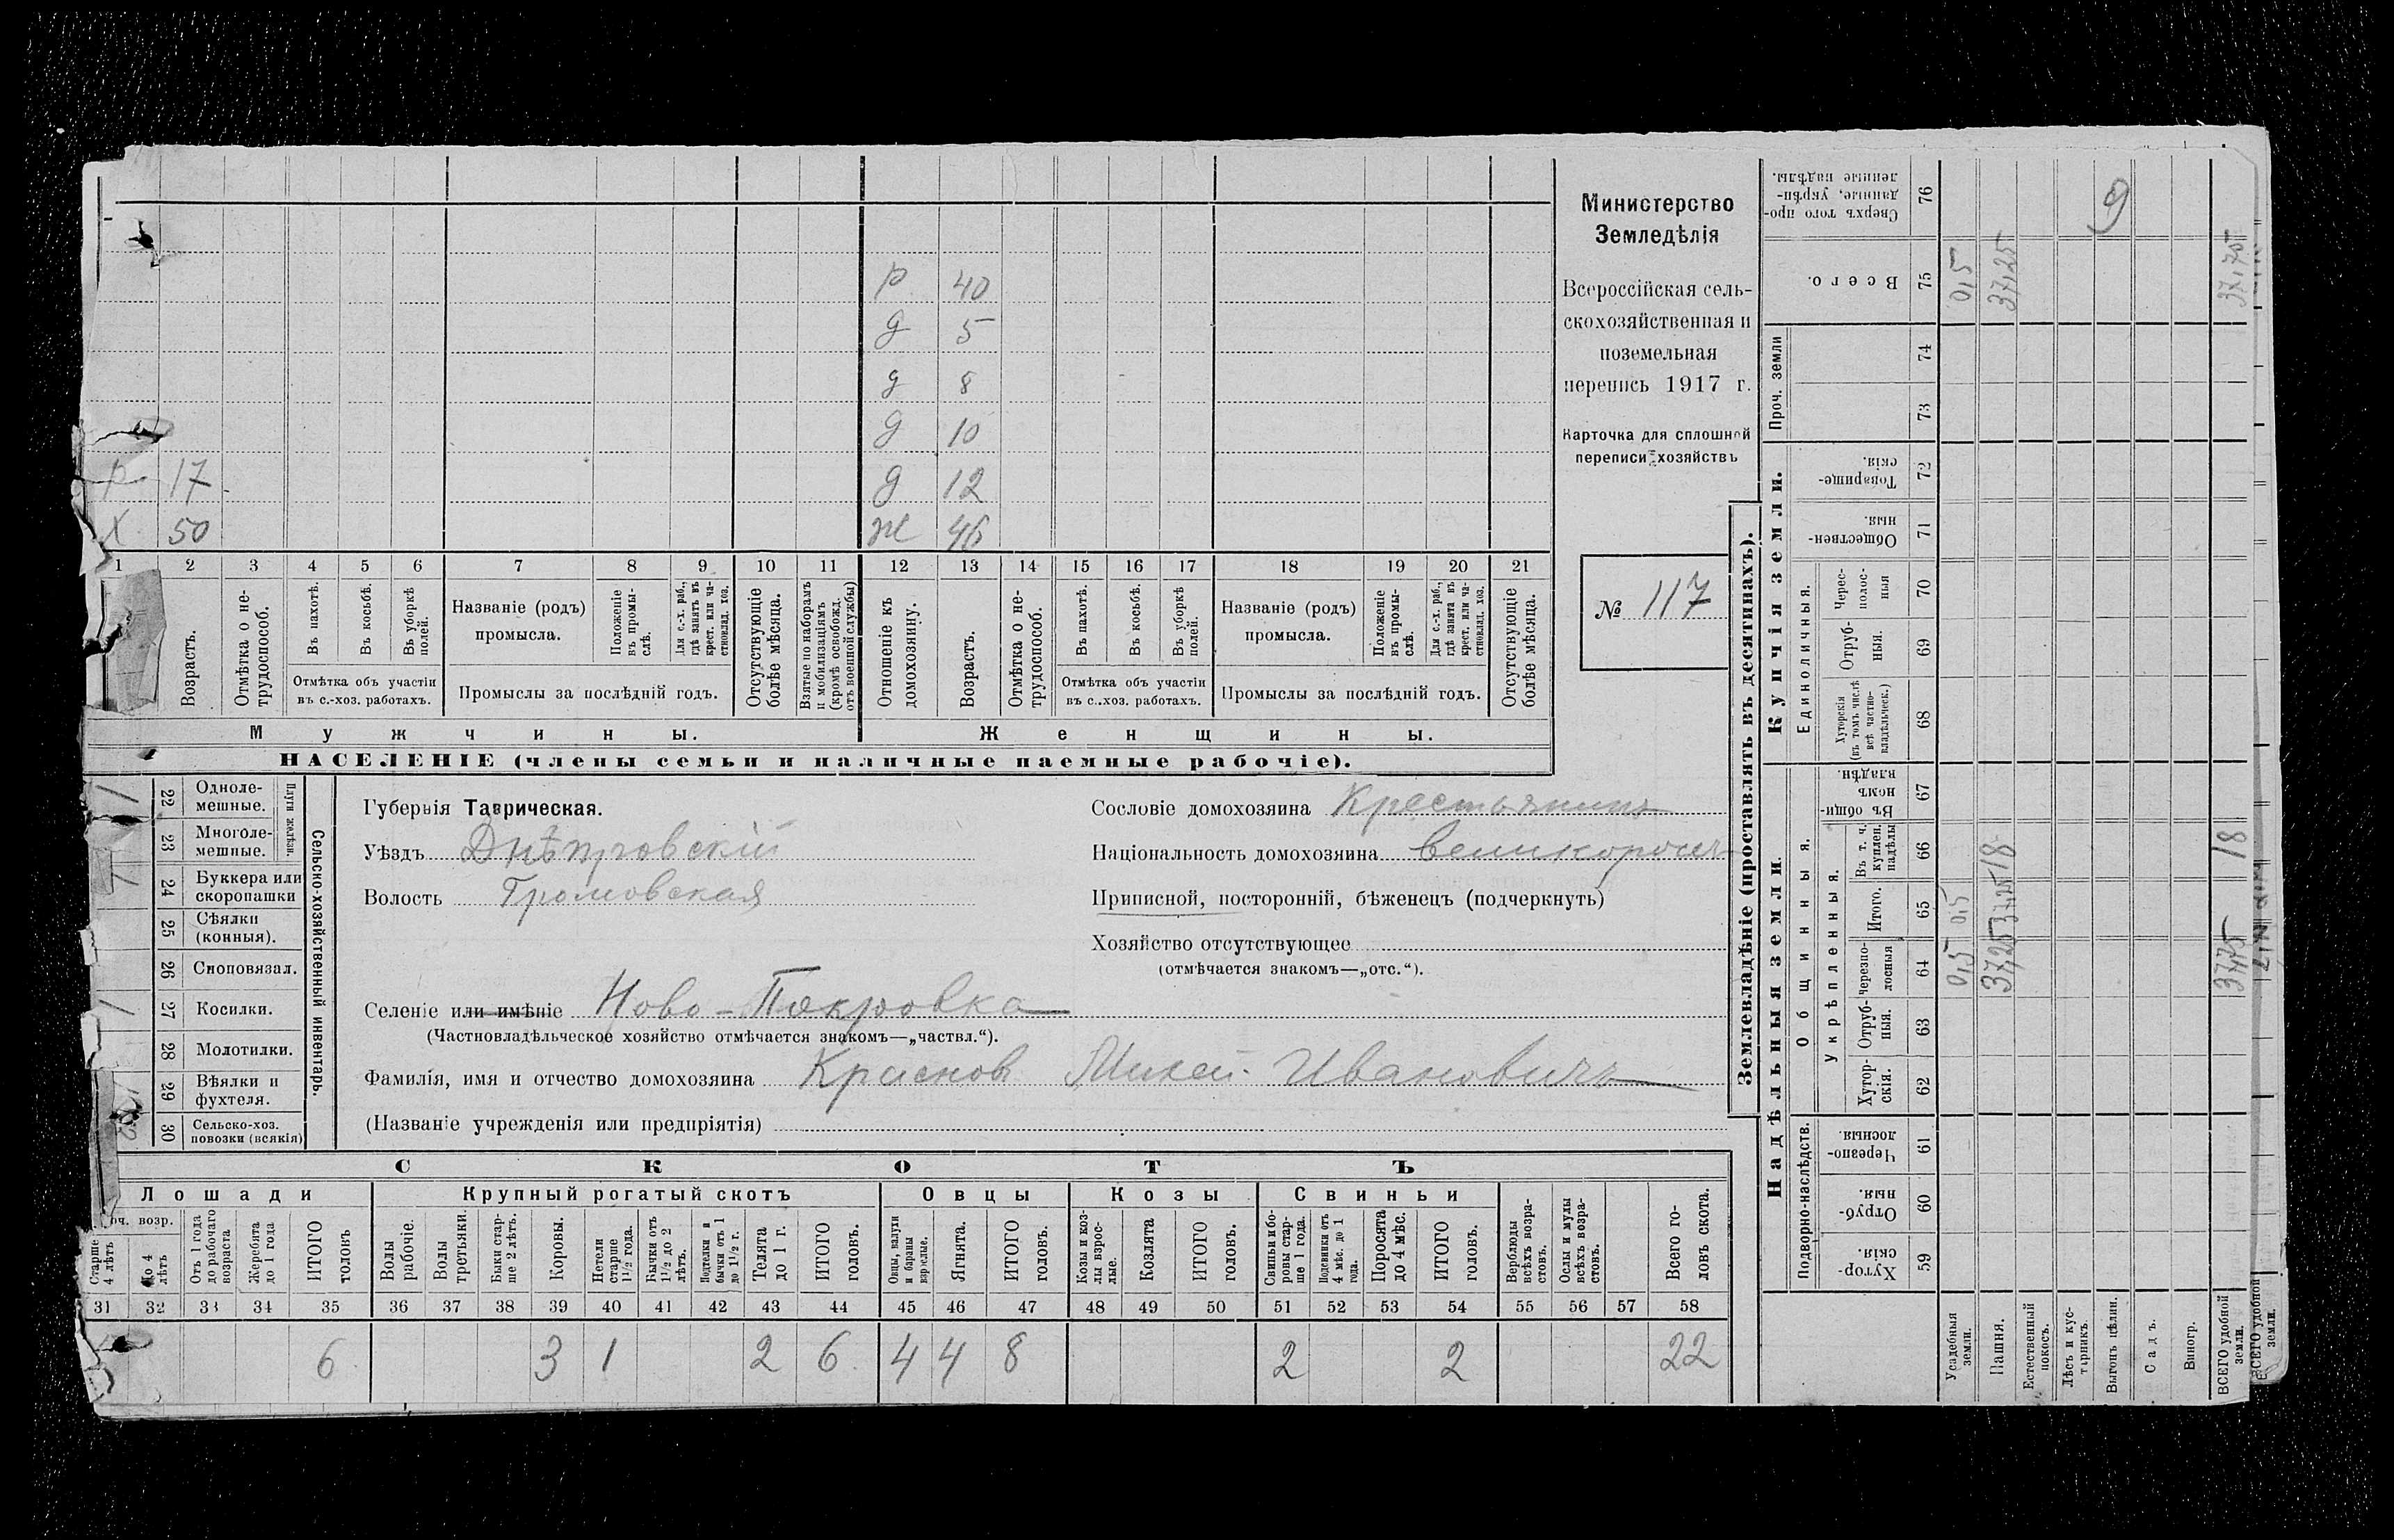 Министерство
Земледѣлія
Всероссійская сель-
скохозяйственная и
поземельная
перепись 1917 г.
Карточка для сплошной
переписи хозяйствъ
№ 117
р 40
д 5
д 8
д 10
р 17 д 12
Х 50 ж 46
1 2 3 4 5 6 7 8 9 10 11 12 13 14 15 16 17 18 19 20 21
Возрастъ.
Отмѣтка о не-
трудоспособ.
Въ пахотѣ.
Въ косьбѣ.
Въ уборкѣ
полей.
Отмѣтка объ участіи
въ с.-хоз. работахъ.
Названіе (родъ)
промысла.
Положеніе
въ промы-
слѣ.
Для с.-х. раб.,
гдѣ занятъ въ
крест. или ча-
стновлад. хоз.
Промыслы за послѣдній годъ.
Отсутствующіе
болѣе мѣсяца.
Взятые по наборамъ
и мобилизаціямъ
(кромѣ освобожд.
отъ военной службы)
Отношеніе къ
домохозяину.
Возрастъ.
Отмѣтка о не-
трудоспособ.
Въ пахотѣ.
Въ косьбѣ.
Въ уборкѣ
полей.
Отмѣтка объ участіи
въ с..хоз. работахъ.
Названіе (родъ)
промысла.
Положеніе
въ промы-
слѣ.
Для с.-х. раб.,
гдѣ занята въ
крест. или ча-
стновлад. хоз.
Промыслы за послѣдній годъ.
Отсутствующіе
болѣе мѣсяца.
Мужчины. Женщины.
НАСЕЛЕНІЕ (члены семьи и наличные наемные рабочіе).
Сельско-хозяйственный инвентарь.
Плуги желѣзн.
22 Одноле-
мешные.
23 Многоле-
мешные.
24 Буккера или
скоропашки
25 Сѣялки
(конныя).
26 Сноповязал.
27 Косилки.
28 Молотилки.
29 Вѣялки и
фухтеля.
30 Сельско-хоз.
повозки (всякія)
Губернія Таврическая.
Уѣздъ Днѣпровскій
Волость Громовская
Селеніе или имѣніе Ново-Покровка
(Частновладѣльческое хозяйство отмѣчается знакомъ—„частвл.“).
Фамилія, имя и отчество домохозяина Краснов Михей Ивановичъ
(Названіе учрежденія или предпріятія)
Сословіе домохозяина Крестьянинъ
Національность домохозяина великоросъ
Приписной, посторонній, бѣженецъ (подчеркнуть)
Хозяйство отсутствующее
(отмѣчается знакомъ—„отс.“).
СКОТЪ
Лошади Крупный рогатый скотъ Овцы Козы Свиньи
возр.
Старше
4 лѣтъ
До 4
лѣтъ
Отъ 1 года
до рабочаго
возраста
Жеребята
до 1 года
ИТОГО
головъ
Волы
рабочіе.
Волы
третьяки.
Быки стар-
ше 2 лѣтъ.
Коровы.
Нетели
старше
1½ года.
Бычки отъ
1½ до 2
лѣтъ.
Подтелки и
бычки отъ 1
до 1½ г.
Телята
до 1 г.
ИТОГО
головъ.
Овцы, валухи
и бараны
взрослые.
Ягнята.
ИТОГО
головъ.
Козы и коз-
лы взрос-
лые.
Козлята
ИТОГО
головъ.
Свиньи и бо-
ровы стар-
ше 1 года.
Подсвинки отъ
4 мѣс. до 1
года.
Поросята
до 4 мѣс.
ИТОГО
головъ.
Верблюды
всѣхъ возра-
стовъ.
Ослы и мулы
всѣхъ возра-
стовъ.
Всего го-
ловъ скота.
31 32 33 34 35 36 37 38 39 40 41 42 43 44 45 46 47 48 49 50 51 52 53 54 55 56 57 58
6 3 1 2 6 4 4 8 2 2 22
Землевладѣніе (проставлять въ десятинахъ).
Надѣльныя земли. Купчія земли. Проч. земли
Подворно-наслѣдств. Общинныя. Единоличныя.
Укрѣпленныя.
Хутор-
скія. 59
Отруб-
ныя. 60
Черезпо-
лосныя. 61
Хутор-
скія. 62
Отруб-
ныя. 63
Черезпо-
лосныя 64
Итого. 65
Въ т. ч.
куплен.
надѣлы 66
Въ общи-
номъ
владѣн. 67
Хуторскія
(въ томъ числѣ
всѣ частно-
владѣльческ.) 68
Отруб-
ныя. 69
Черес-
полос-
ныя 70
Обществен-
ныя. 71
Товарище-
скія. 72
73
74
Всего. 75
Сверхъ того про-
данные, укрѣп-
ленные надѣлы. 76
Усадебныя
земли. 0,5 0,5 0,5
Пашня. 37,25 37,25 18 37,25
Естественный
покосъ.
Лѣсъ и кус-
тарникъ.
Выгонъ цѣлин. 9
Садъ.
Виногр.
ВСЕГО удобной
земли. 37,75 18
ВСЕГО удобной
земли.